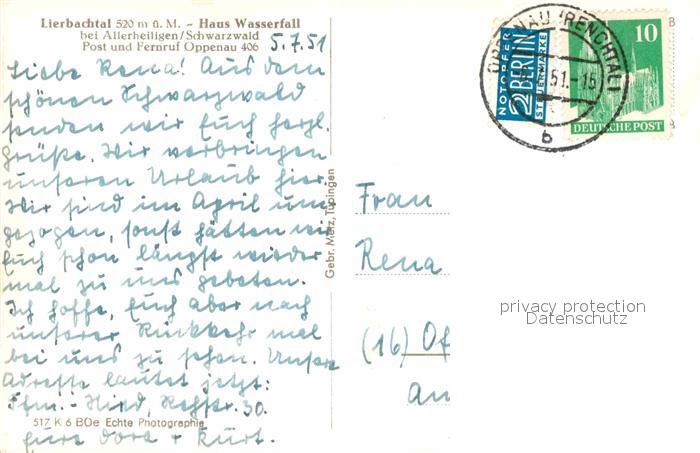 Lierbachtal 520 m ü. M. - Haus Wasserfall
bei Allerheiligen/Schwarzwald
Post und Fernruf Oppenau 406
5.7.51
Liebe Rena! Aus dem
schönen Schwarzwald
senden wir Euch herzl.
Grüße. Wir verbringen
unseren Urlaub hier.
Wir sind im April um-
gezogen, sonst hätten wir
Euch schon längst wieder
mal zu uns gebeten.
Ich hoffe, Euch aber nach
unserer Rückkehr mal
bei uns zu sehen. Unsere
Adresse lautet jetzt:
Ffm.- Nied, 30.
Eure Dora + Kurt.
517 K 6 BOe Echte Photographie
Gebr. Metz, Tübingen
NOTOPFER
2 BERLIN
STEUERMARKE
OPPENAU (RENCHTAL)
51.-15
b
10
DEUTSCHE POST
Frau
Rena
(16) Of
An
privacy protection
Datenschutz